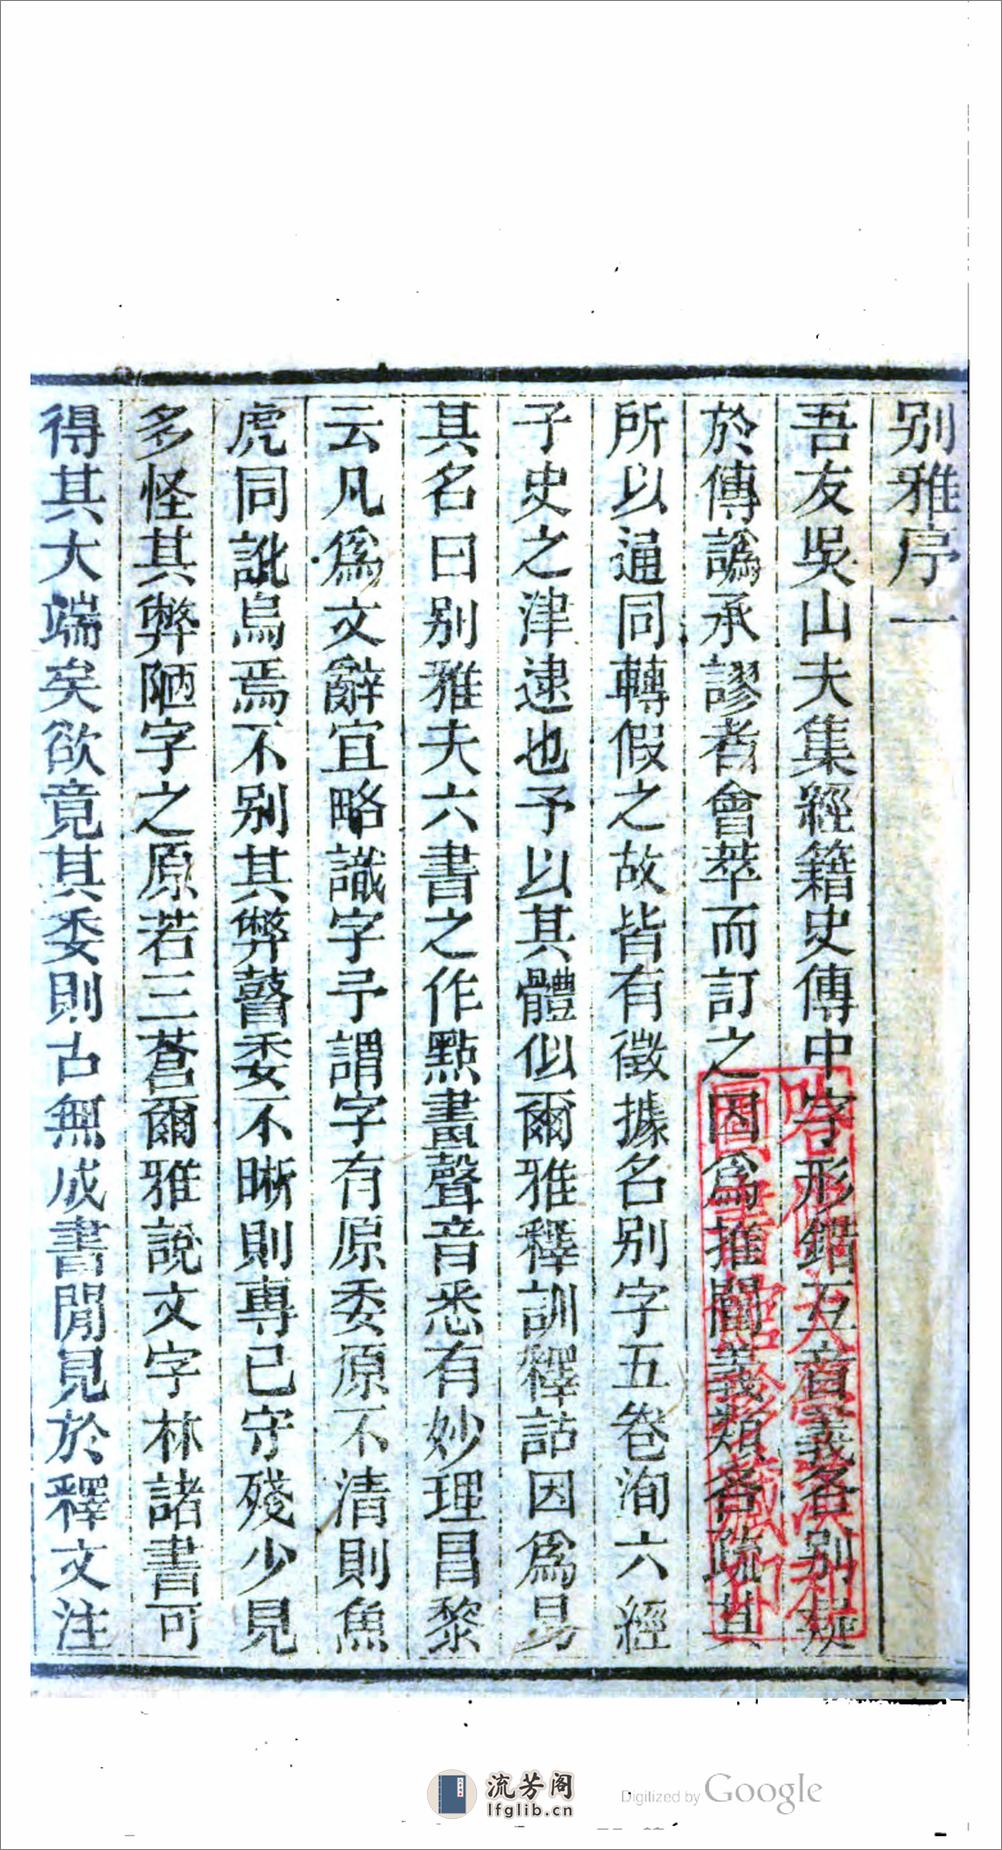 别雅序一
吾友吳山夫集經籍史傳中字形錯互音義各别疑
於傳譌承謬者會萃而訂之因為推闡義類各疏其
所以通同轉假之故皆有徵據名别字五卷洵六經
子史之津逮也予以其體似爾雅釋訓釋詁因爲易
其名曰别雅夫六書之作點畫聲音悉有妙理昌黎
云凡爲文辭宜略識字予謂字有原委原不清則魚
虎同訛烏焉不别其弊瞀委不晰則專己守殘少見
多怪其弊陋字之原若三蒼爾雅說文字林諸書可
得其大端矣欲竟其委則古無成書閒見於釋文注
流芳阁
lfglib.cn
Digitized by Google